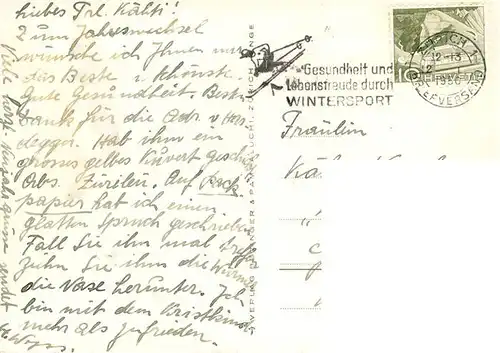 liebes Frl. Käthi!
Zum Jahreswechsel
wünsche ich Ihnen nur
das Beste u Schönste.
Gute Gesundheit. Besten
Dank für die Adr. v
Hab ihm ein
grosses gelbes Kuvert geschickt
Abs. Zürileu. Auf Pack
papier hat ich einen
glatten Spruch geschrieben
Fall Sie ihm mal treffen
zühn Sie ihm die Würmer
die Vase herunter. Ich
bin mit dem Kristkind
mehr als zufrieden.
Viele herzl. Neujahrsgrüsse sendet
Gesundheit und
Lebensfreude durch
WINTERSPORT
ZÜRICH 1
12-13
BRIEFVERSAND
10
Fräulein